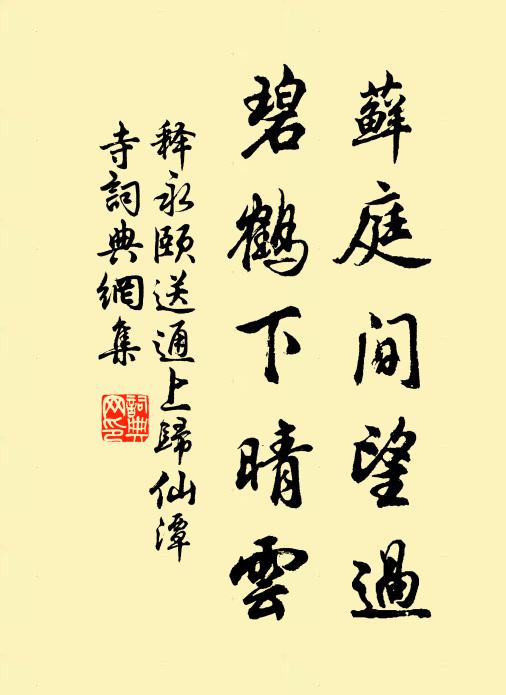 蘚庭間望過
碧鶴下晴雲
释永頤送通上歸仙潭
寺詞典網集
詞典
网印